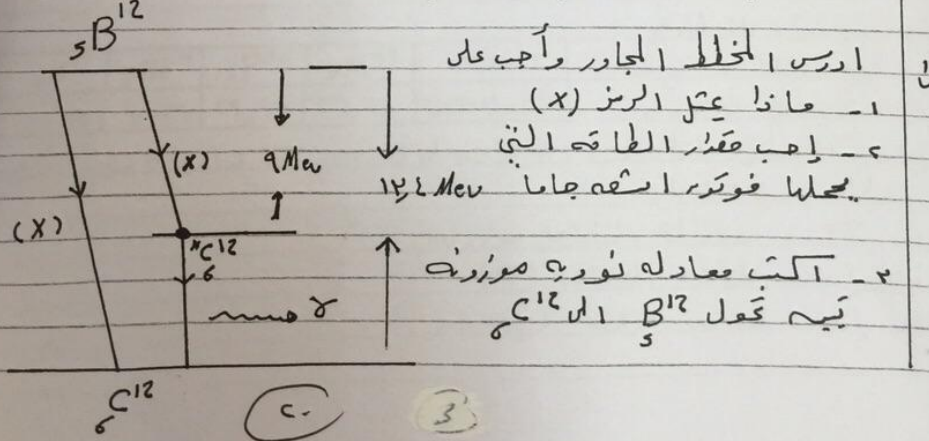 ادرس المخطط المجاور وأجب على
١- ماذا يمثل الرمز (x)
٢- إحسب مقدار الطاقه التي
يحملها فوتون اشعه جاما
٣- اكتب معادله نوويه موزونه
تبين تحول ₅B¹² الى ₆C¹²
₅B¹²
(X)
(X)
٩ Mev
١٣,٤ Mev
*C¹²
6
γ
₆C¹²
3